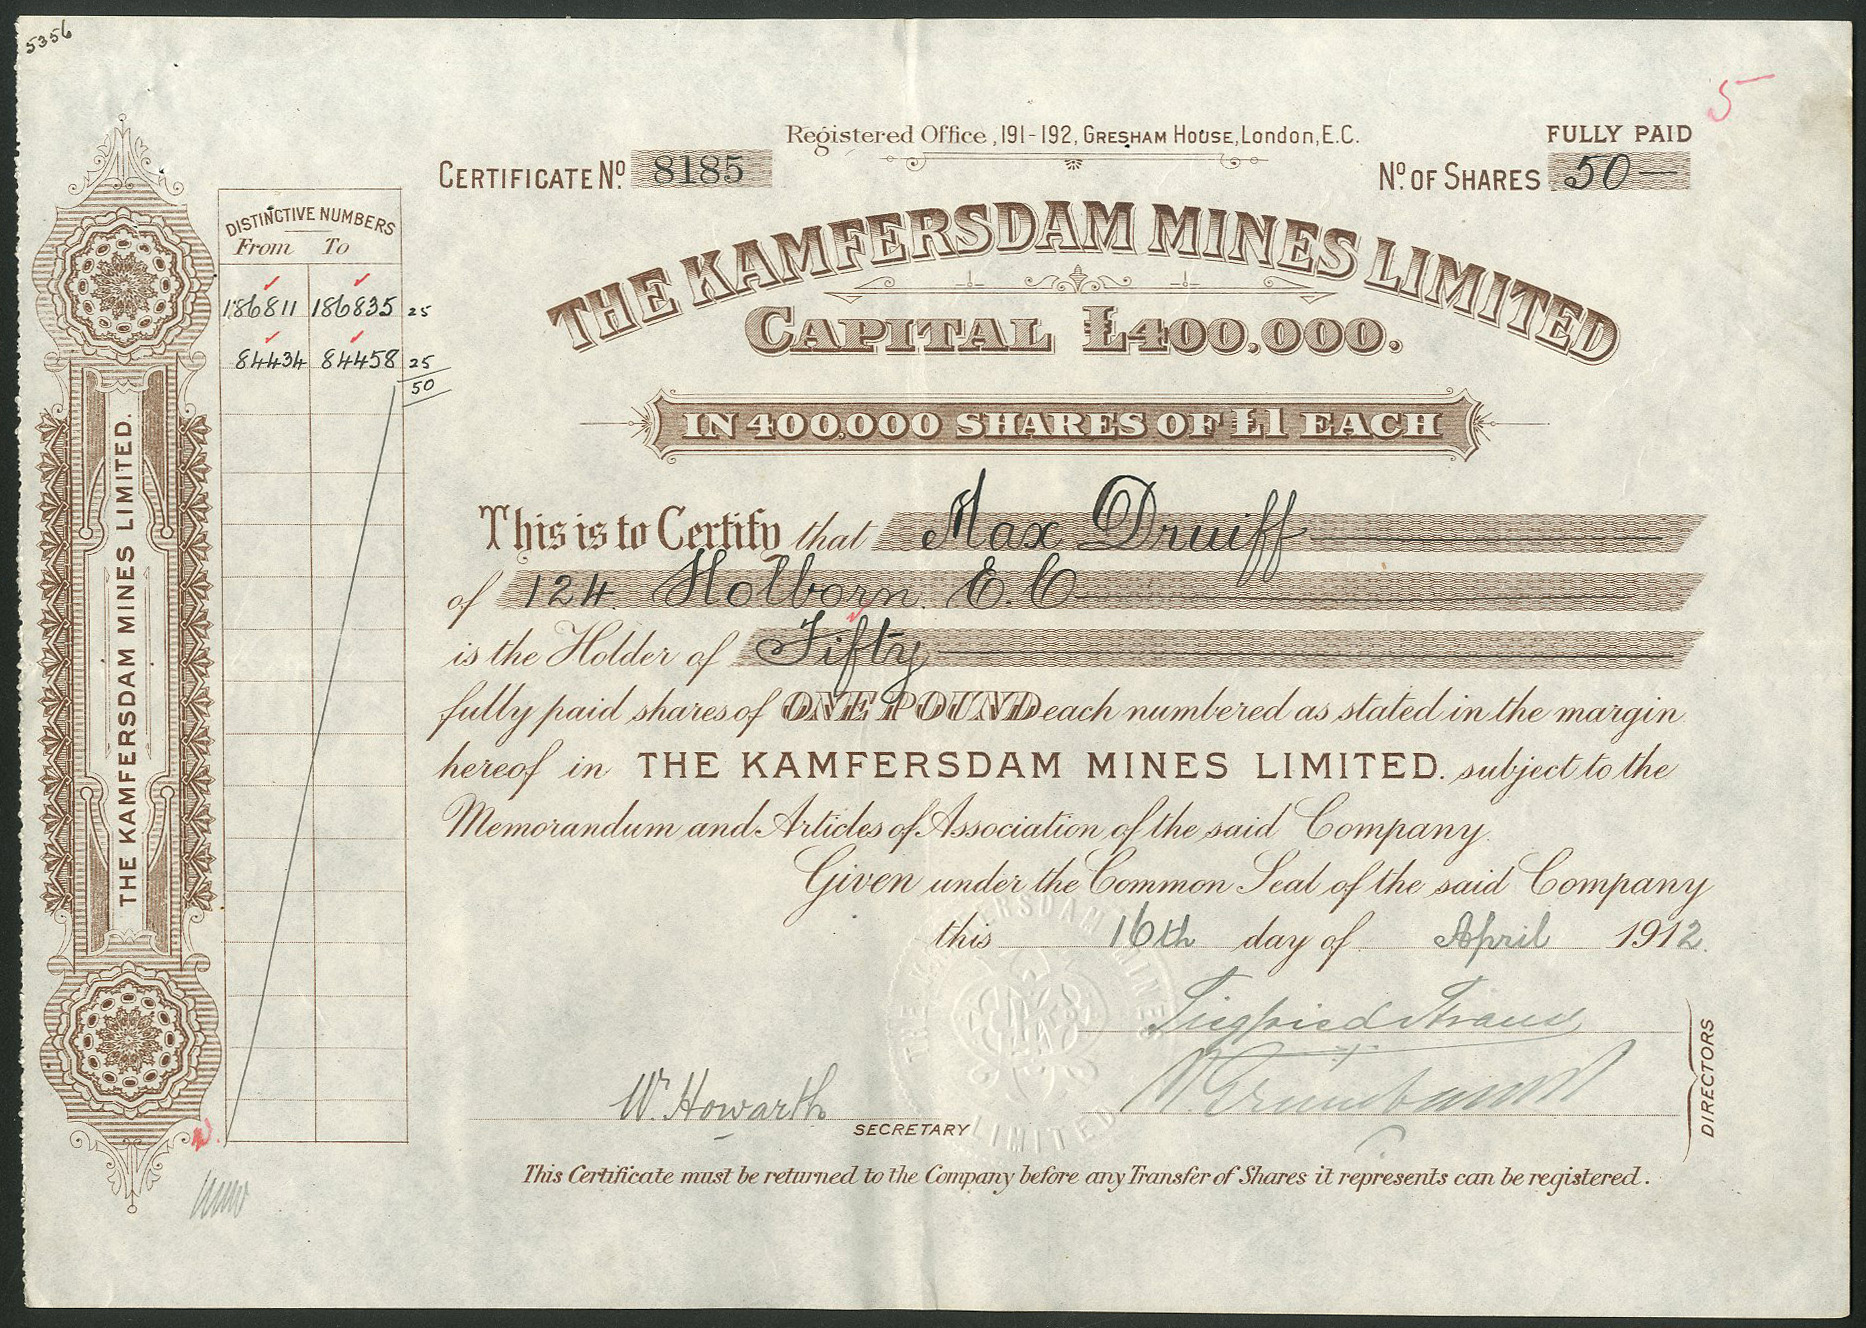 5356
5
Registered Office, 191-192, GRESHAM HOUSE, London, E.C.
FULLY PAID
CERTIFICATE No. 8185
No. OF SHARES 50—
DISTINCTIVE NUMBERS
From To
186811 186835 25
84434 84458 25
50
THE KAMFERSDAM MINES LIMITED.
THE KAMFERSDAM MINES LIMITED
CAPITAL £400,000.
IN 400,000 SHARES OF £1 EACH
This is to Certify that Max Druiff
of 124. Holborn. E.C
is the Holder of Fifty
fully paid shares of ONE POUND each numbered as stated in the margin
hereof in THE KAMFERSDAM MINES LIMITED. subject to the
Memorandum and Articles of Association of the said Company.
Given under the Common Seal of the said Company
this 16th day of April 1912.
THE KAMFERSDAM MINES LIMITED
Siegfried
DIRECTORS
W. Howarth
SECRETARY
This Certificate must be returned to the Company before any Transfer of Shares it represents can be registered.